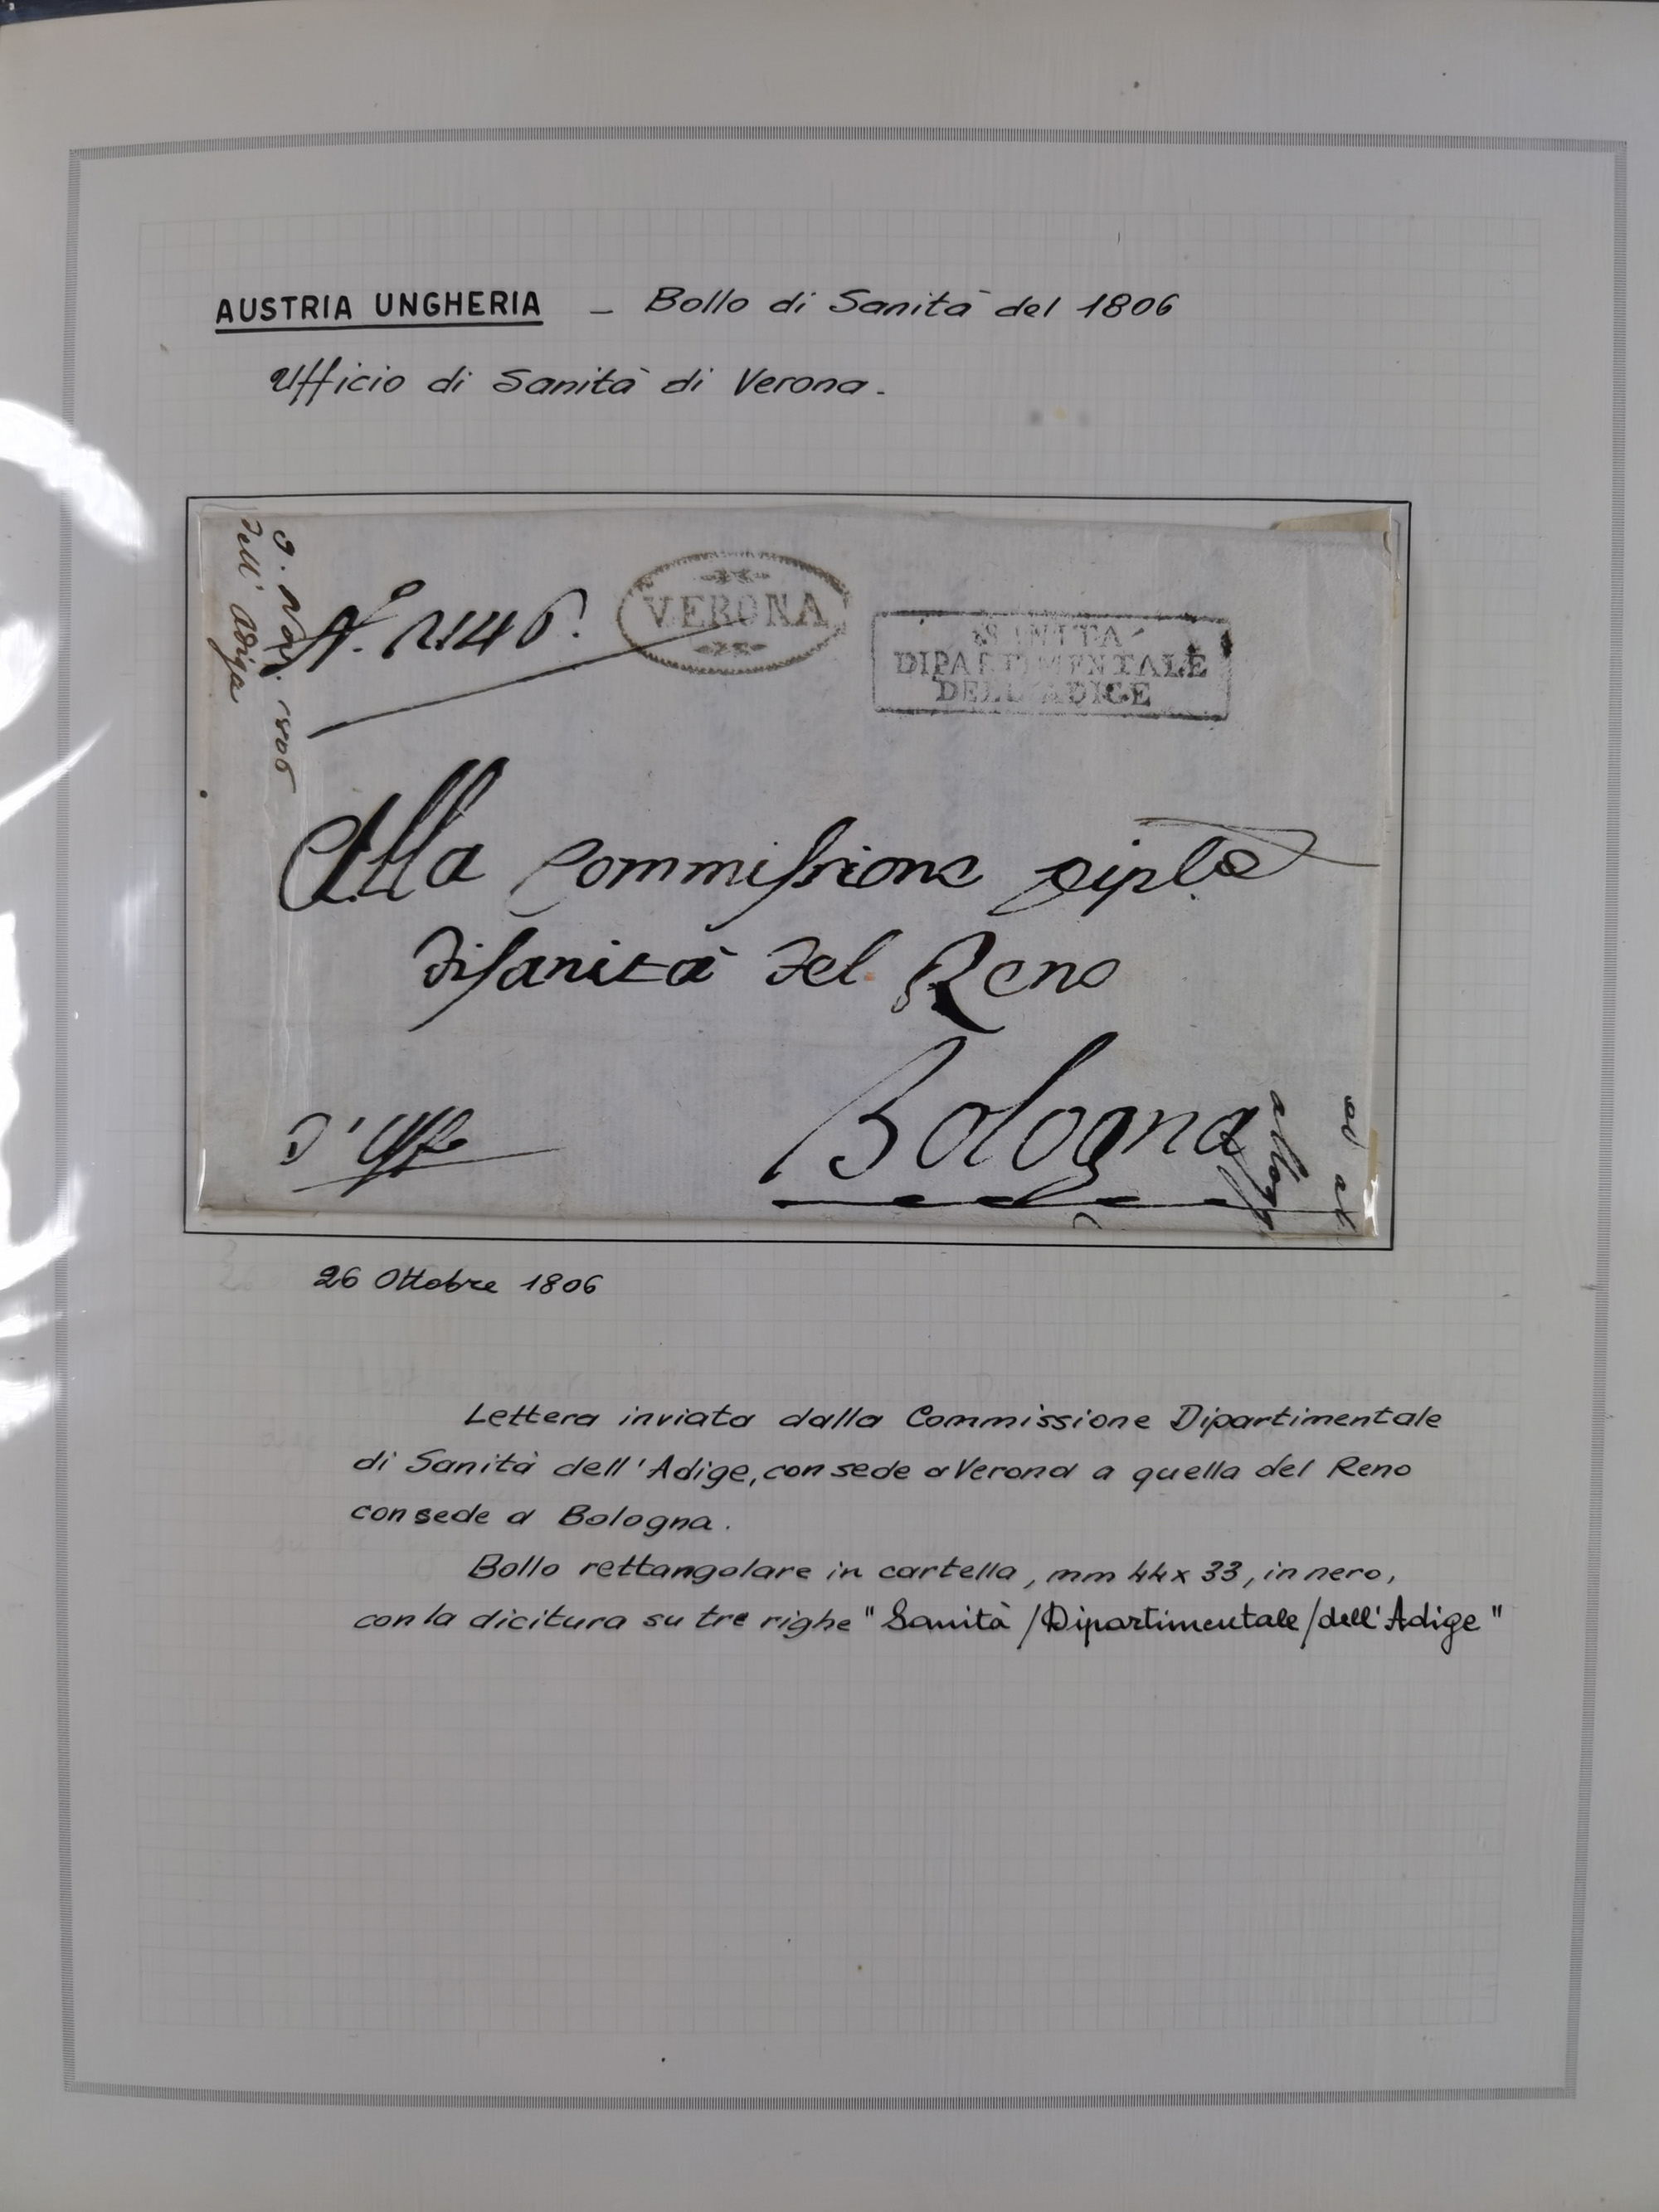 AUSTRIA UNGHERIA - Bollo di Sanità del 1806
Ufficio di Sanità di Verona.
9. Nov. 1806
dell' Adige
VERONA
SANITA
DIPARTIMENTALE
DELL'ADIGE
Alla Commissione Diple
di Sanità del Reno
Bologna
D'Uffo
26 Ottobre 1806
Lettera inviata dalla Commissione Dipartimentale
di Sanità dell'Adige, con sede a Verona a quella del Reno
con sede a Bologna.
Bollo rettangolare in cartella, mm 44x33, in nero,
con la dicitura su tre righe "Sanità/Dipartimentale/dell'Adige"